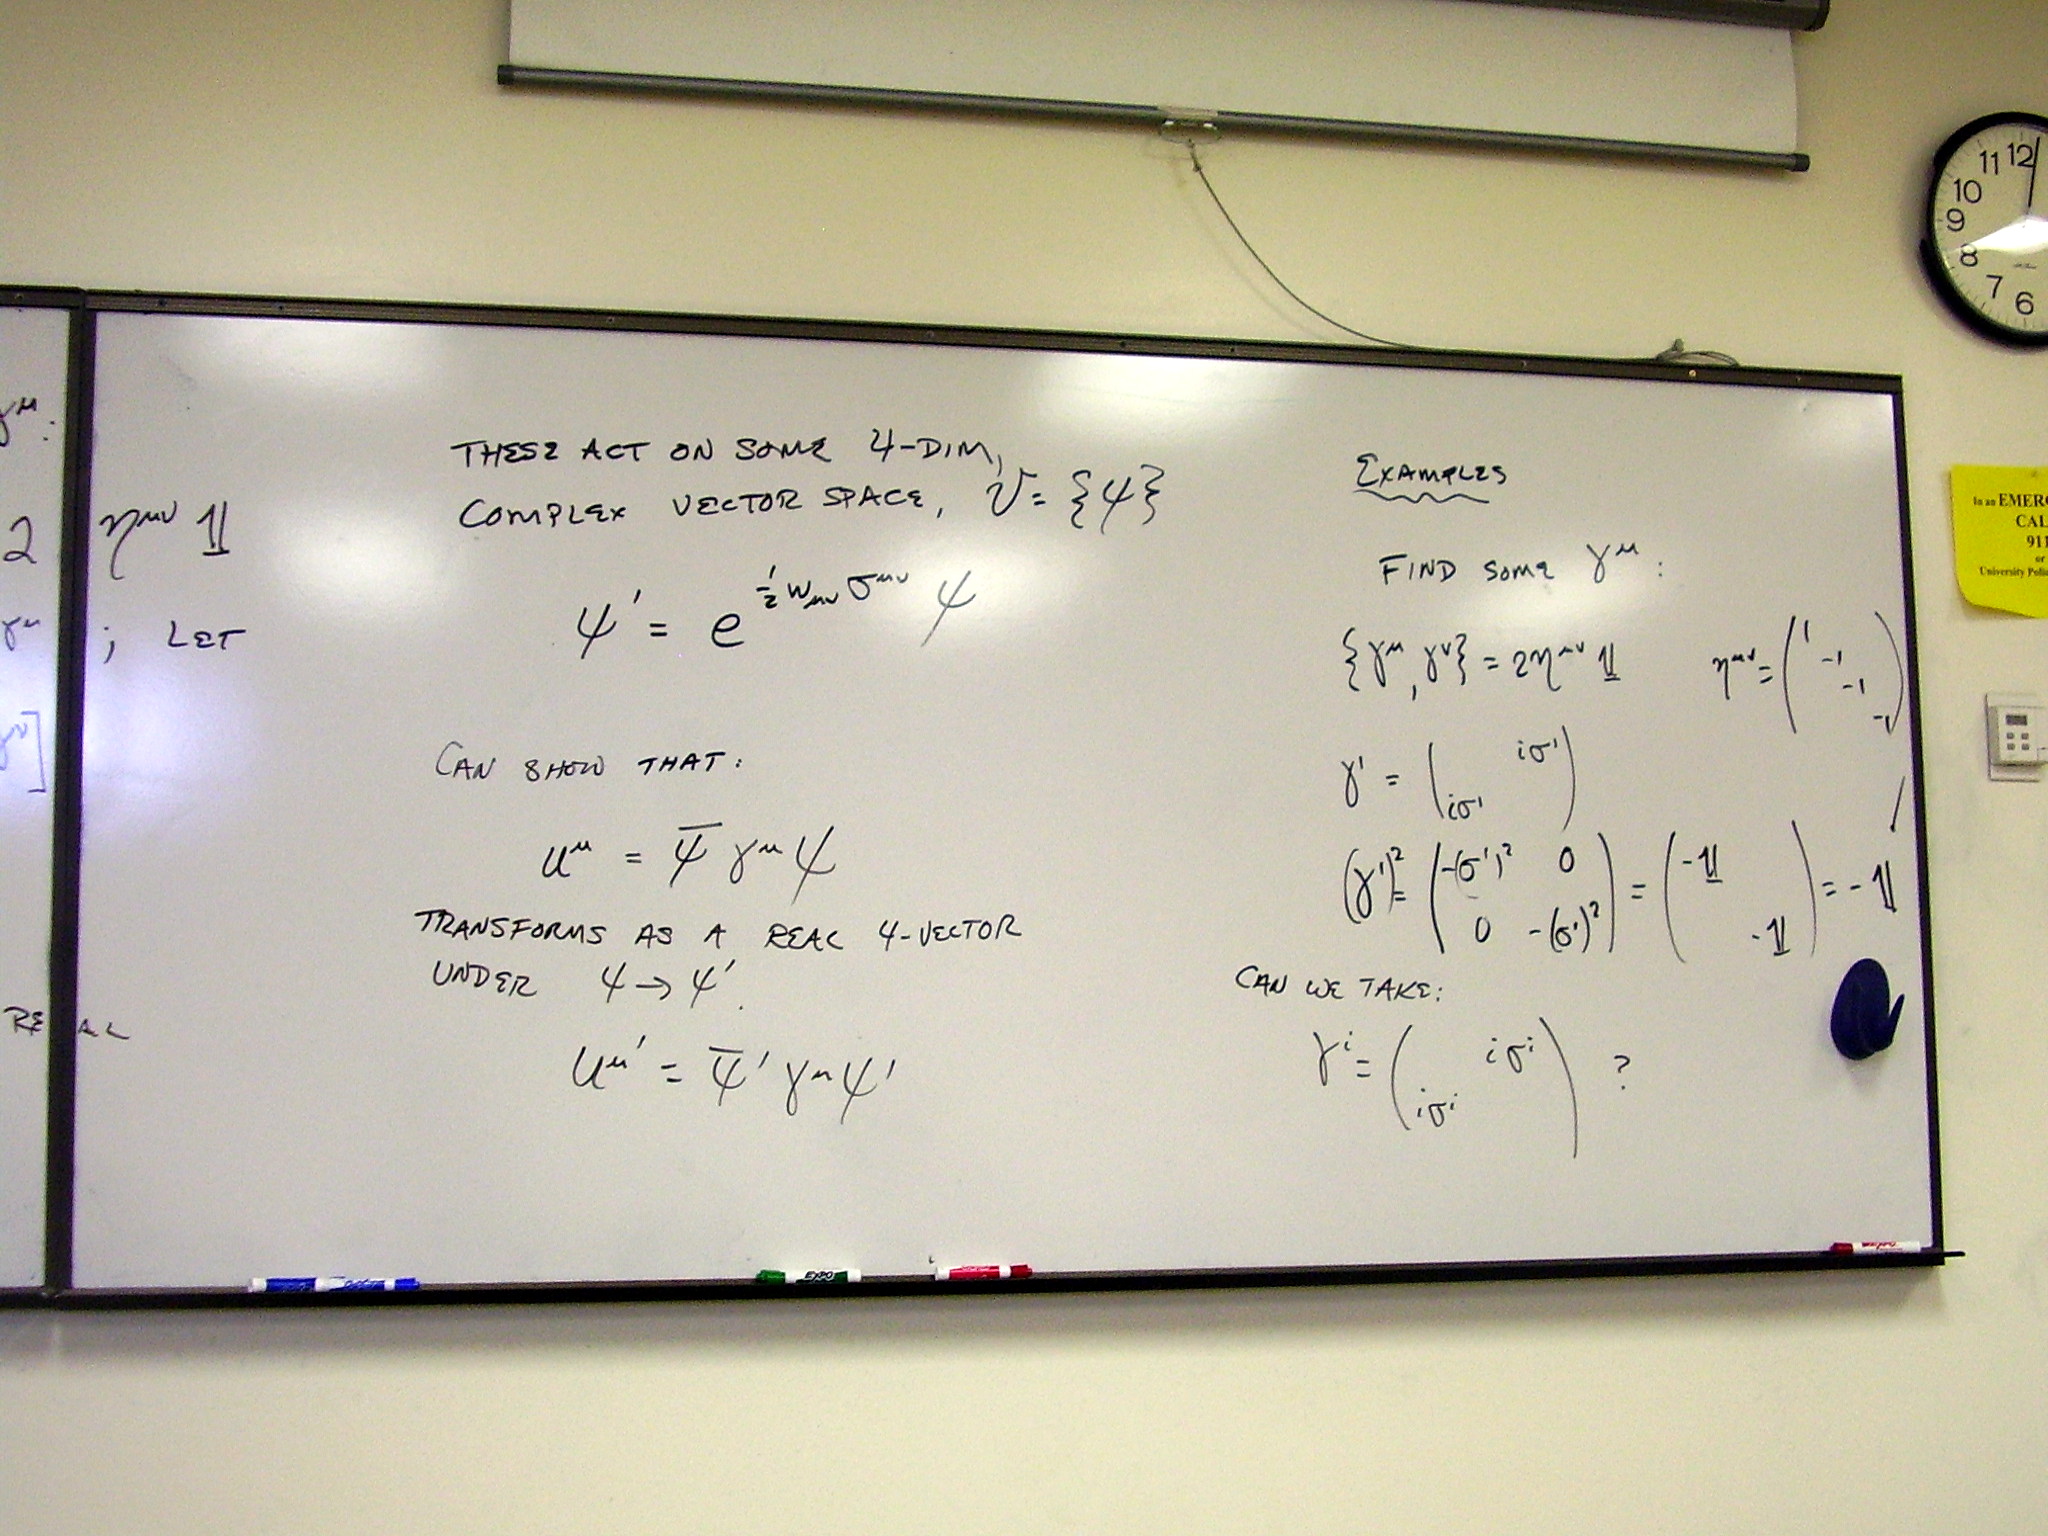 γ^μ:
2 η^{μν} 𝟙
γ^μ ; LET
γ^ν]
REAL
THESE ACT ON SOME 4-DIM,
COMPLEX VECTOR SPACE, V = {ψ}
ψ' = e^{½ w_{μν} σ^{μν}} ψ
CAN SHOW THAT:
u^μ = ψ̄ γ^μ ψ
TRANSFORMS AS A REAL 4-VECTOR
UNDER ψ → ψ'.
u^μ' = ψ̄' γ^μ ψ'
EXAMPLES
FIND SOME γ^μ:
{γ^μ, γ^ν} = 2η^{μν} 𝟙 η^{μν} = (1 -1 -1 -1)
γ^1 = ( iσ^1
iσ^1 )
(γ^1)^2 = ( -(σ^1)^2 0
0 -(σ^1)^2 ) = ( -𝟙
-𝟙 ) = -𝟙 ✓
CAN WE TAKE:
γ^i = ( iσ^i
iσ^i ) ?
11 12
10
9
8
7 6
In an EMERG
CAL
911
or
University Polic
EXPO